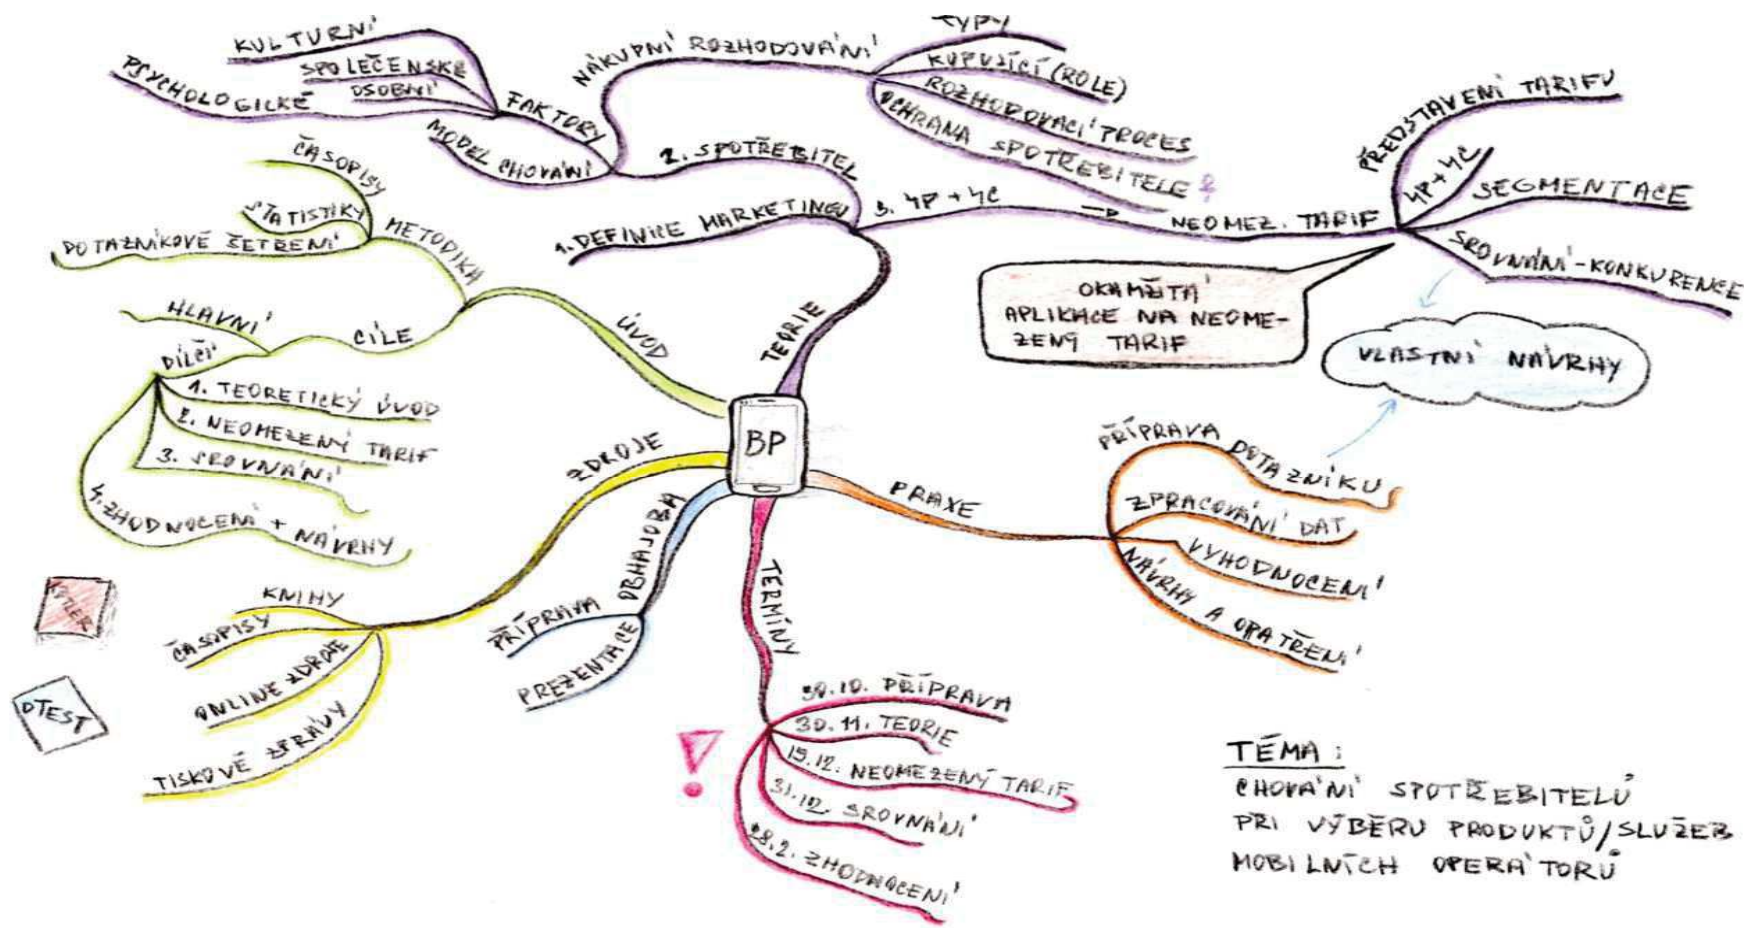 BP
TEORIE
1. DEFINICE MARKETINGU
2. SPOTŘEBITEL
MODEL CHOVÁNÍ
FAKTORY
KULTURNÍ
SPOLEČENSKÉ
OSOBNÍ
PSYCHOLOGICKÉ
NÁKUPNÍ ROZHODOVÁNÍ
TYPY
KUPUJÍCÍ (ROLE)
ROZHODOVACÍ PROCES
OCHRANA SPOTŘEBITELE ?
3. 4P + 4C
NEOMEZ. TARIF
PŘEDSTAVENÍ TARIFU
4P + 4C
SEGMENTACE
SROVNÁNÍ - KONKURENCE
OKAMŽITÁ
APLIKACE NA NEOME-
ZENÝ TARIF
VLASTNÍ NÁVRHY
ÚVOD
METODIKA
ČASOPISY
STATISTIKY
DOTAZNÍKOVÉ ŠETŘENÍ
CÍLE
HLAVNÍ
DÍLČÍ
1. TEORETICKÝ ÚVOD
2. NEOMEZENÝ TARIF
3. SROVNÁNÍ
4. ZHODNOCENÍ + NÁVRHY
ZDROJE
KNIHY
ČASOPISY
ONLINE ZDROJE
TISKOVÉ ZPRÁVY
KOTLER
DTEST
OBHAJOBA
PŘÍPRAVA
PREZENTACE
TERMÍNY
30.10. PŘÍPRAVA
30.11. TEORIE
15.12. NEOMEZENÝ TARIF
31.12. SROVNÁNÍ
28.2. ZHODNOCENÍ
!
PRAXE
PŘÍPRAVA DOTAZNÍKU
ZPRACOVÁNÍ DAT
VYHODNOCENÍ
NÁVRHY A OPATŘENÍ
TÉMA:
CHOVÁNÍ SPOTŘEBITELŮ
PŘI VÝBĚRU PRODUKTŮ/SLUŽEB
MOBILNÍCH OPERÁTORŮ